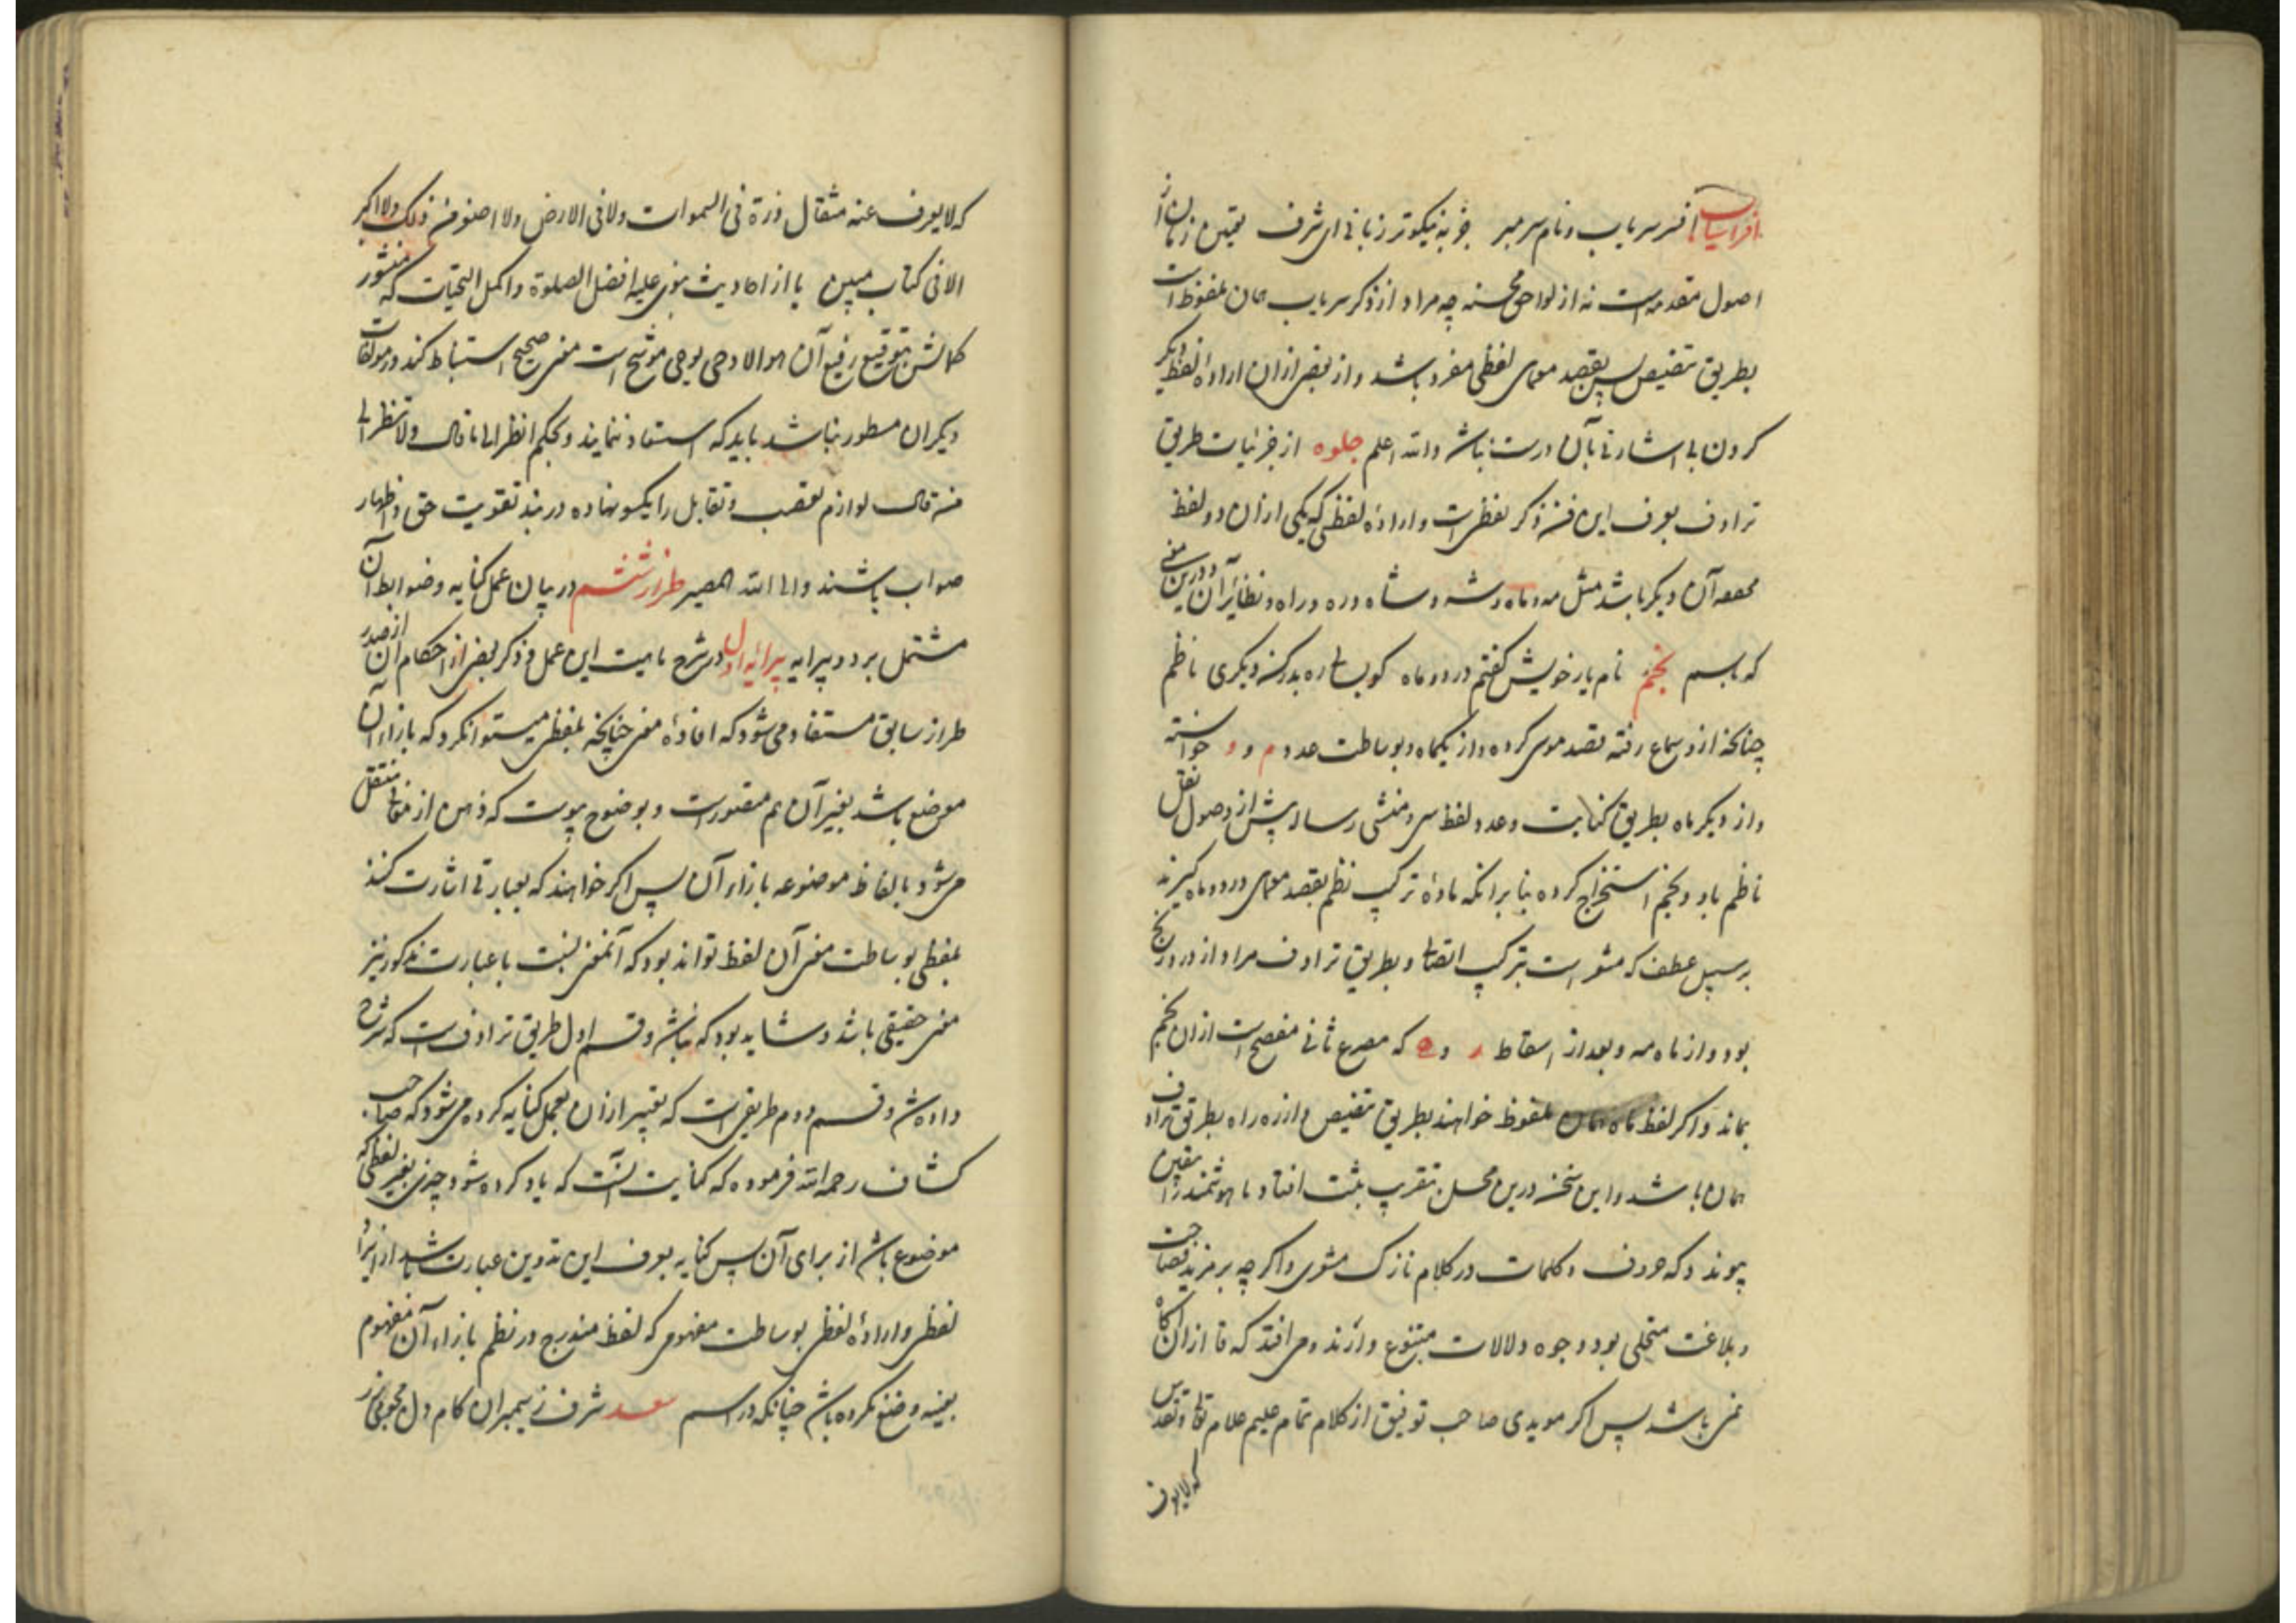 افراسیاب افسر سر یاب و نام سر مبر جز به نیکوتر زبانی ای شرف تعیین زمان از
اصول مقدمه است نه از لواحق محسنه چه مراد از ذکر سر یاب همان ملفوظ است
بطریق تنصیص پس بقصد معمای لفظی مفرد باشد و از بعض ازان اراده لفظ دیگر
کردن بی اشارتی بآن درست نباشد والله اعلم جلوه از جزئیات طریق
ترادف بعرف این فن ذکر لفظی است و اراده لفظی که یکی ازان دو لفظ
مخفف آن دیگر باشد مثل مه و ماه و شه و شاه و ره و راه و نظایر آن و درین معنی
که باسم نجم نام یار خویش گفتم در دو ماه کو بیا ره بدر کند دیگری ناظم
چنانکه ازو سماع رفته بقصد معمی کرده و از یکماه و بوساطت عدد م و و خواسته
و از دیگر ماه بطریق کنایت و عدد لفظ سی و منشی رساله پیش از وصول نقل
ناظم باد و نجم استخراج کرده بنا برانکه ماده ترکیب نظم بقصد معمای در دو ماه گیرند
بر سبیل عطف که مشعر است بترکیب اتصالی و بطریق ترادف مراد از در درنج
بود و از ماه مه و بعد از اسقاط ر و ه که مصرع ثانی مفصح است ازان نجم
بماند و اگر لفظ ماه همان ملفوظ خواهند بطریق تنصیص و از ره راه بطریق ترادف
همان باشد و این سخن درین محل بتقریب ثبت افتاد تا هوشمند را متیقن
پیوندد که حروف و کلمات در کلام نازک مثنوی و اگر چه بر مزید فصاحت
و بلاغت متحلی بود وجوه دلالات متنوع دارند و می افتد که تا ازان آگاه
نمی باشد پس اگر مویدی صاحب توفیق از کلام تمام علیم علام تعالی و تقدس
که لایعرف
که لا یعرف عنه مثقال ذرة فی السموات ولا فی الارض ولا اصغر من ذلک ولا اکبر
الا فی کتاب مبین یا از احادیث نبوی علیه افضل الصلوة و اکمل التحیات که منشور
کمالش بتوقیع رفیع آن هو الا وحی یوحی موشح است معنی صحیح استنباط کند و در مولفات
دیگران مسطور نباشد باید که استبعاد ننمایند و بحکم انظر الی ما قال ولا تنظر الی
من قال لوازم تعصب و تقابل را یکسو نهاده در بند تقویت حق و اظهار
صواب باشند والی الله المصیر طراز ششم در بیان عمل کنایه و ضوابط آن
مشتمل بر دو پیرایه پیرایه اول در شرح ماهیت این عمل و ذکر بعض از احکام آن از صدر
طراز سابق مستفاد می شود که افاده معنی چنانچه بلفظی میتوان کرد که بازاء آن
موضوع باشد بغیر آن هم مقدورست و بوضوح پیوست که ذهن از معانی منتقل
می شود بالفاظ موضوعه بازاء آن پس اگر خواهند که بعبارتی اشارت کنند
بلفظی بوساطت معنی آن لفظ تواند بود که آنمعنی نسبت با عبارت مذکور نیز
معنی حقیقی باشد و شاید بود که نباشد و قسم اول طریق ترادف است که شرح
داده شد و قسم دوم طریقی است که تعبیر ازان بعمل کنایه کرده می شود که صاحب
کشاف رحمه الله فرموده که کنایت آنست که یاد کرده شود چیزی بغیر لفظی که
موضوع باشد از برای آن پس کنایه بعرف این تدوین عبارت باشد از ایراد
لفظی و اراده لفظی بوساطت مفهومی که لفظ مندرج در نظم بازاء آن مفهوم
بعینه وضع نکرده باشد چنانکه در اسم سعد شرف ز سیمبران کام دل مجوی